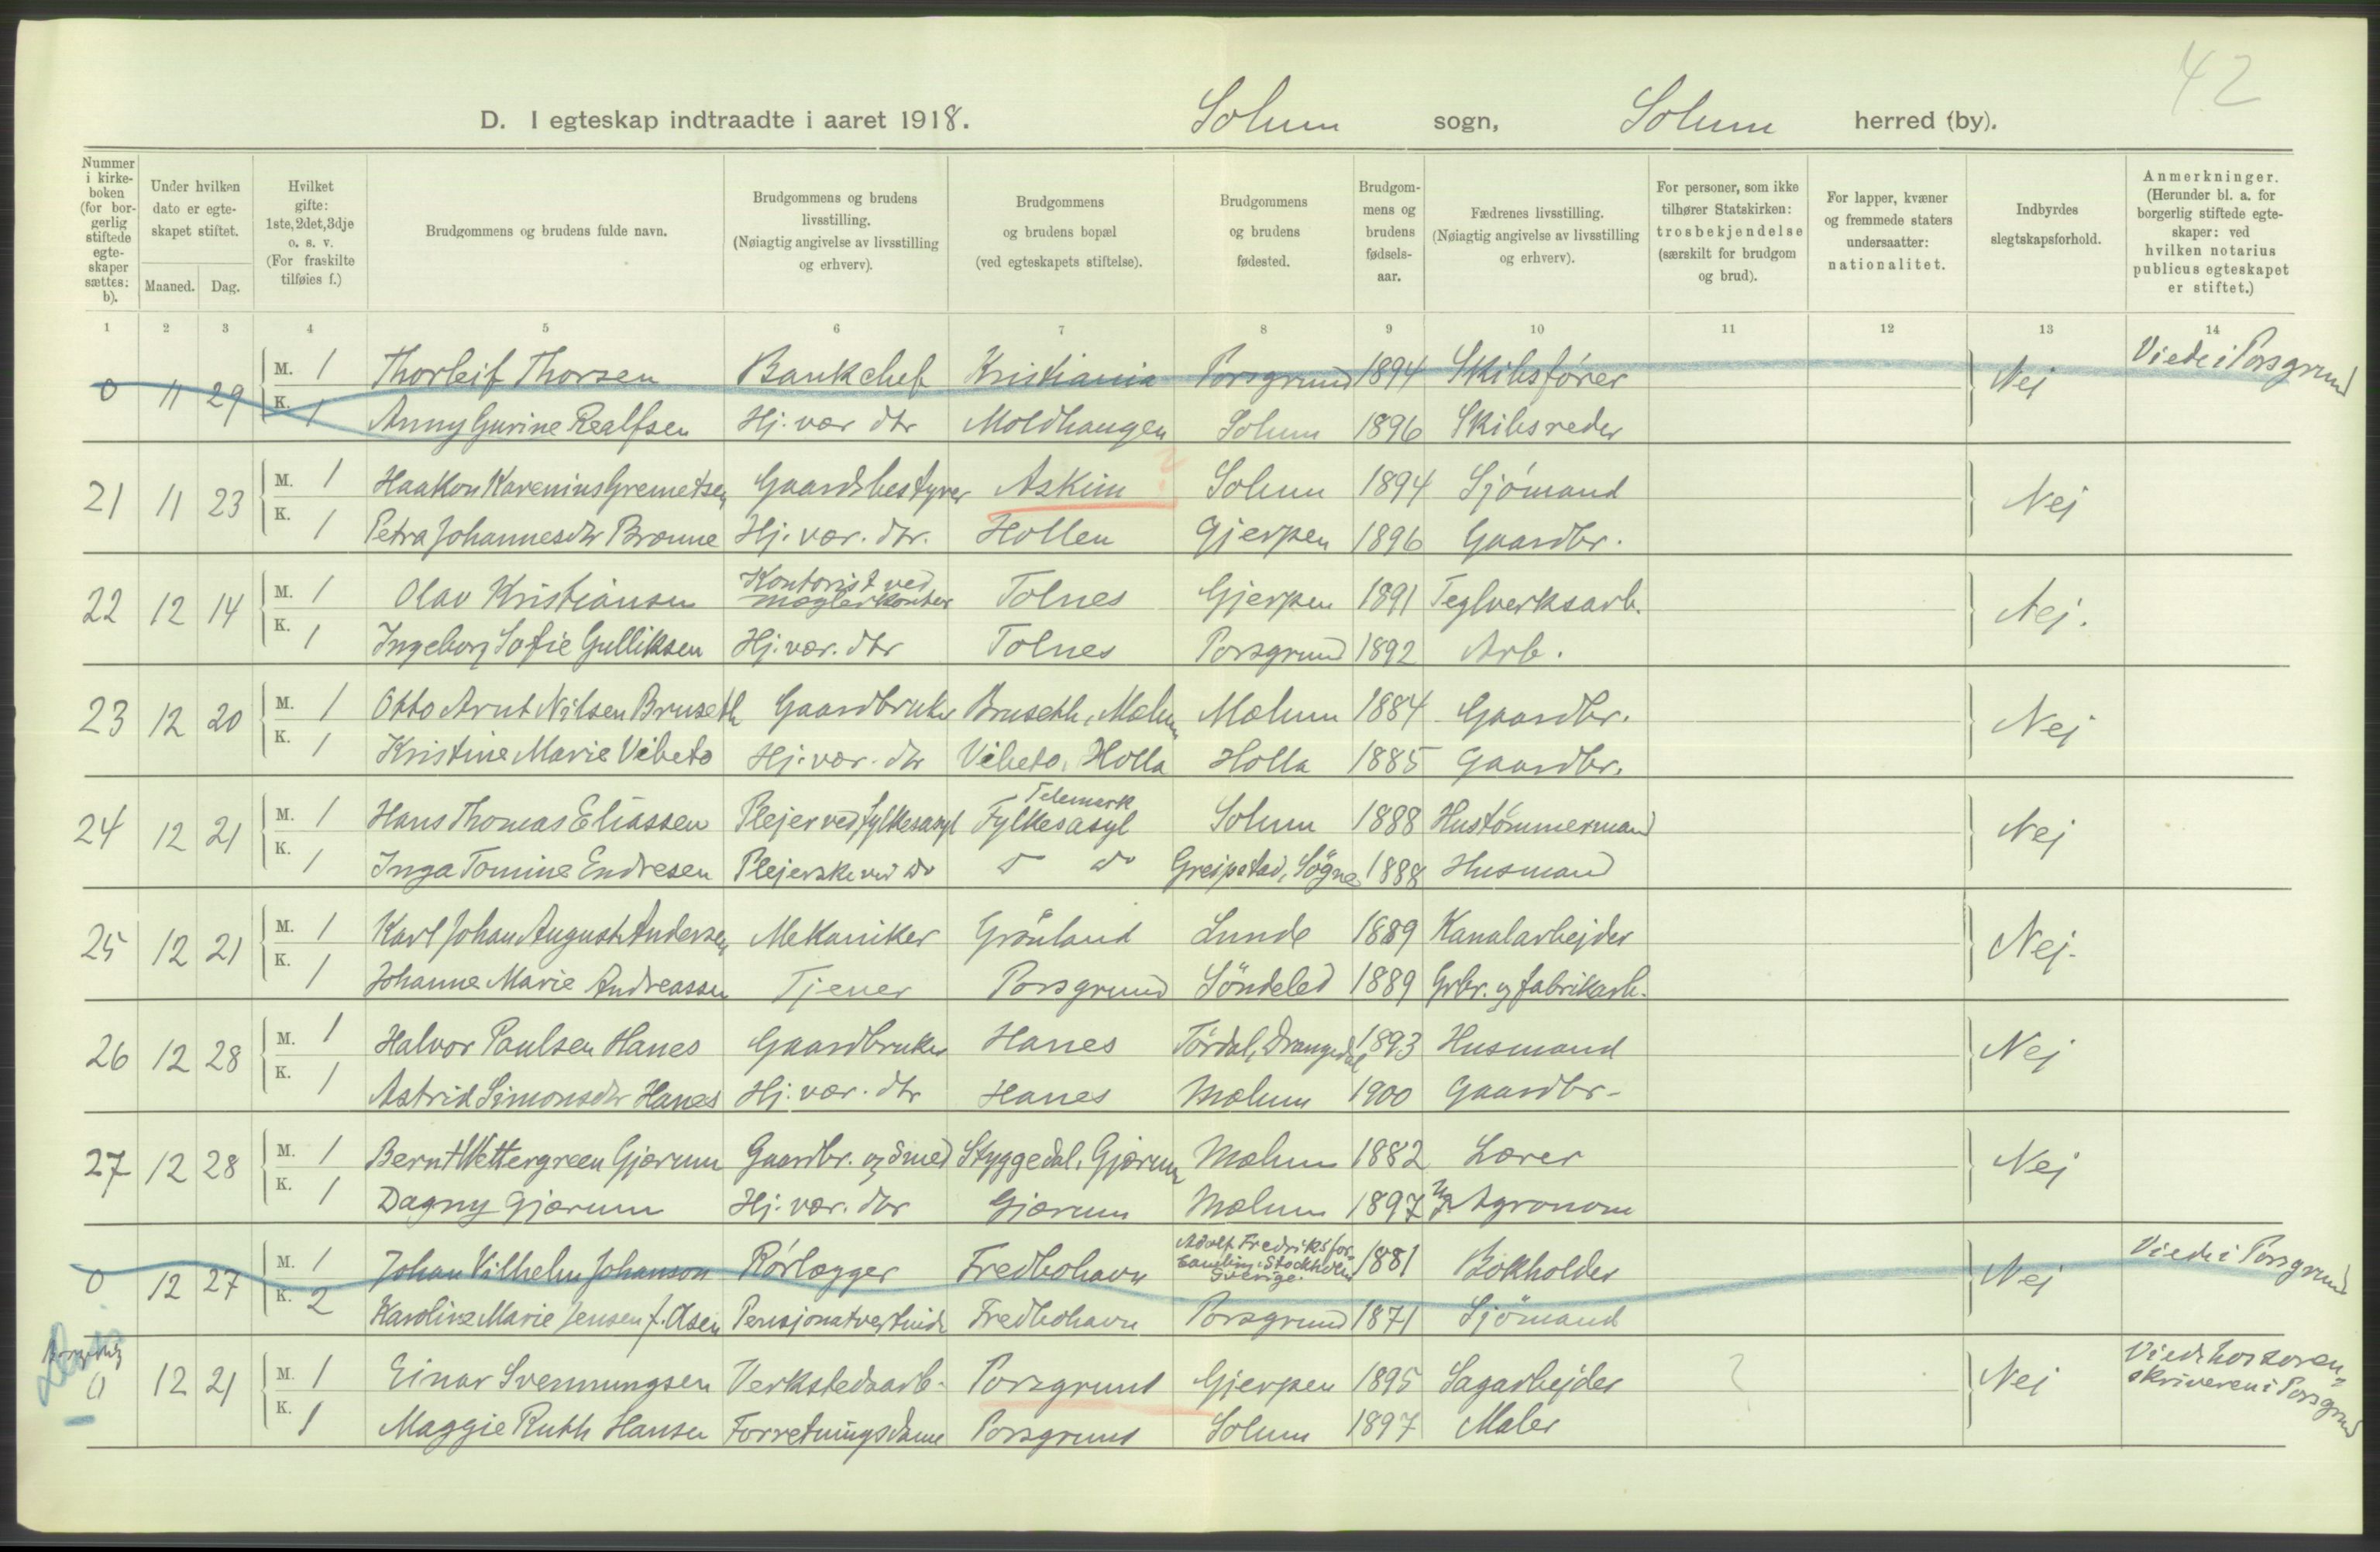 42
D. I egteskap indtraadte i aaret 1918. Solum sogn, Solum herred (by).
Nummer i kirke-boken (for bor-gerlig stiftede egte-skaper sættes: b).
Under hvilken dato er egte-skapet stiftet.
Maaned. Dag.
Hvilket gifte: 1ste, 2det, 3dje o. s. v. (For fraskilte tilføies f.)
Brudgommens og brudens fulde navn.
Brudgommens og brudens livsstilling. (Nøiagtig angivelse av livsstilling og erhverv).
Brudgommens og brudens bopæl (ved egteskapets stiftelse).
Brudgommens og brudens fødested.
Brudgom-mens og brudens fødsels-aar.
Fædrenes livsstilling. (Nøiagtig angivelse av livsstilling og erhverv).
For personer, som ikke tilhører Statskirken: trosbekjendelse (særskilt for brudgom og brud).
For lapper, kvæner og fremmede staters undersaatter: nationalitet.
Indbyrdes slegtskapsforhold.
Anmerkninger. (Herunder bl. a. for borgerlig stiftede egte-skaper: ved hvilken notarius publicus egteskapet er stiftet.)
1 2 3 4 5 6 7 8 9 10 11 12 13 14
0 11 29 M. 1 Thorleif Thorsen Bankchef Kristiania Porsgrund 1894 Skibsfører Nej Viede i Porsgrund
K. 1 Anny Gurine Realfsen Hj. vær dtr Moldhaugen Solum 1896 Skibsreder
21 11 23 M. 1 Haakon Karenius Gremetsen Gaardsbestyrer Askim ? Solum 1894 Sjömand Nej
K. 1 Petra Johannesdtr Bronne Hj. vær. dtr. Hollen Gjerpen 1896 Gaardbr.
22 12 14 M. 1 Olav Kristiansen Kontorist ved mæglerkontor Tolnes Gjerpen 1891 Teglverksarb. Nej.
K. 1 Ingeborg Sofie Gulliksen Hj. vær. dtr Tolnes Porsgrund 1892 Arb.
23 12 20 M. 1 Otto Arnt Nilsen Bruseth Gaardbruker Bruseth, Mælum Mælum 1884 Gaardbr. Nej
K. 1 Kristine Marie Vibeto Hj. vær. dtr Vibeto, Holla Holla 1885 Gaardbr.
24 12 21 M. 1 Hans Thomas Eliassen Plejer ved fylkesasyl Telemark Fylkesasyl Solum 1888 Hustömmermand Nej
K. 1 Inga Tomine Endresen Plejerske ved do do do Greipstad, Sögne 1888 Husmand
25 12 21 M. 1 Karl Johan August Andersen Mekaniker Grönland Lunde 1889 Kanalarbejder Nej.
K. 1 Johanne Marie Andreassen Tjener Porsgrund Söndeled 1889 Grbr. og fabrikarb.
26 12 28 M. 1 Halvor Paulsen Hanes Gaardbruker Hanes Tördal, Drangedal 1893 Husmand Nej
K. 1 Astrid Simonsdtr Hanes Hj. vær. dtr Hanes Mælum 1900 Gaardbr.
27 12 28 M. 1 Bernt Wettergreen Gjærum Gaardbr. og smed Styggedal, Gjærum Mælum 1882 Lærer Nej
K. 1 Dagny Gjærum Hj. vær. dtr Gjærum Mælum 1897 Agronom
0 12 27 M. 1 Johan Vilhelm Johanson Rörlægger Fredbohavn Adolf Fredriks for-samling, Stockholm Sverige. 1881 Bokholder Nej Viede i Porsgrund
K. 2 Karoline Marie Jensen f. Olsen Pensjonatvertinde Fredbohavn Porsgrund 1871 Sjömand
0 12 21 M. 1 Einar Svenningsen Verkstedsarb. Porsgrund Gjerpen 1895 Sagarbejder ? Nej Viede hos soren-skriveren i Porsgrund
K. 1 Maggie Ruth Hansen Forretningsdame Porsgrund Solum 1897 Maler